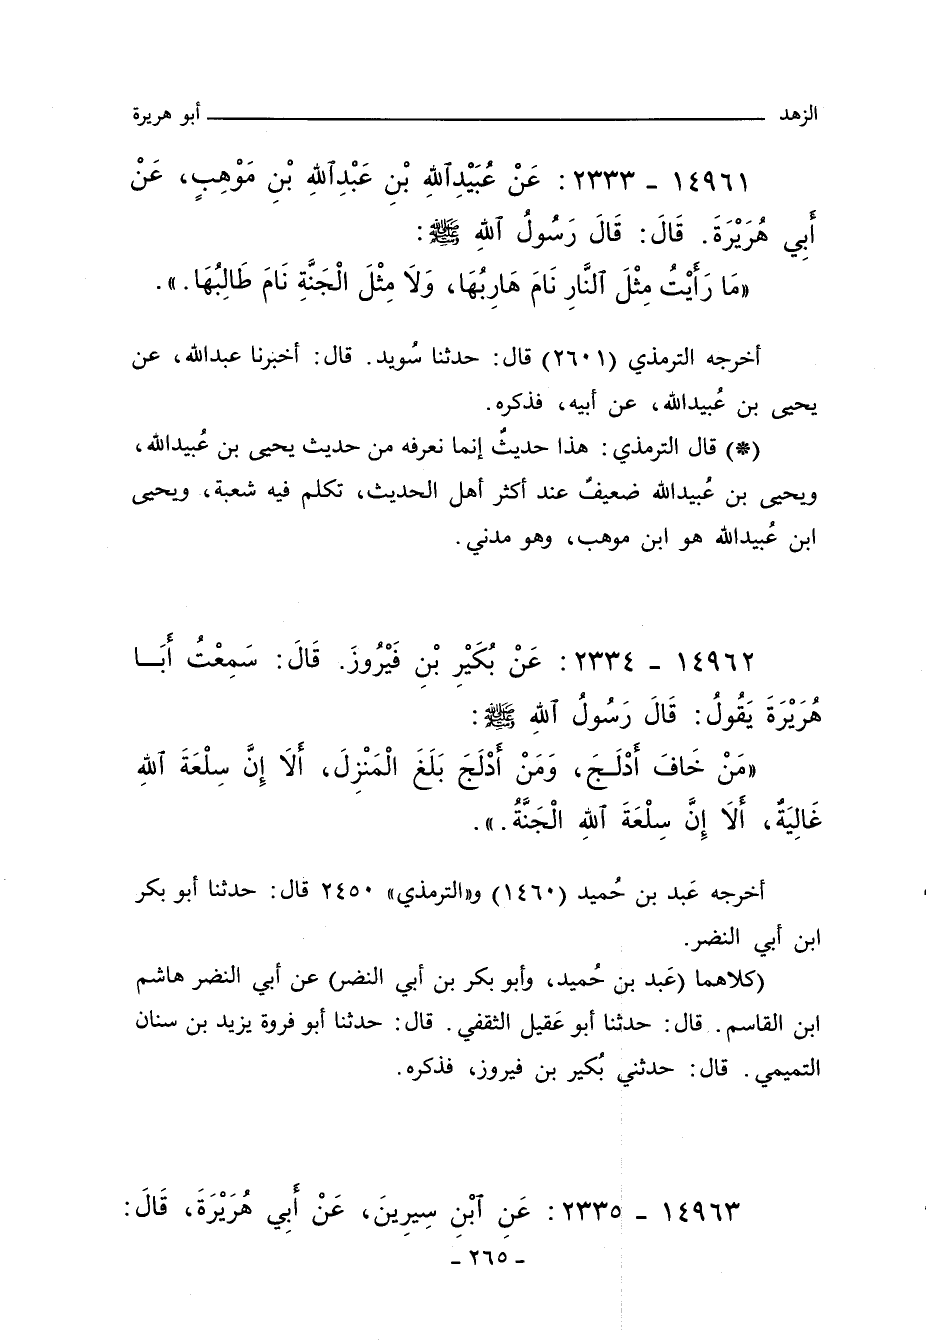 الزهد ــــــــــــــــــــــــــــــــ أبو هريرة
١٤٩٦١ - ٢٣٣٣: عَنْ عُبَيْدِٱللهِ بْنِ عَبْدِٱللهِ بْنِ مَوْهِبٍ، عَنْ
أَبِي هُرَيْرَةَ. قَالَ: قَالَ رَسُولُ ٱللهِ ﷺ:
«مَا رَأَيْتُ مِثْلَ ٱلنَّارِ نَامَ هَارِبُهَا، وَلَا مِثْلَ الْجَنَّةِ نَامَ طَالِبُهَا.».
أخرجه الترمذي (٢٦٠١) قال: حدثنا سُويد. قال: أخبرنا عبدالله، عن
يحيى بن عُبيدالله، عن أبيه، فذكره.
(*) قال الترمذي: هذا حديثٌ إنما نعرفه من حديث يحيى بن عُبيدالله،
ويحيى بن عُبيدالله ضعيفٌ عند أكثر أهل الحديث، تكلم فيه شعبة، ويحيى
ابن عُبيدالله هو ابن موهب، وهو مدني.
١٤٩٦٢ - ٢٣٣٤: عَنْ بُكَيْرِ بْنِ فَيْرُوزَ. قَالَ: سَمِعْتُ أَبَـا
هُرَيْرَةَ يَقُولُ: قَالَ رَسُولُ ٱللهِ ﷺ:
«مَنْ خَافَ أَدْلَـجَ، وَمَنْ أَدْلَجَ بَلَغَ الْمَنْزِلَ، أَلَا إِنَّ سِلْعَةَ ٱللهِ
غَالِيَةٌ، أَلَا إِنَّ سِلْعَةَ ٱللهِ الْجَنَّةُ.».
أخرجه عَبد بن حُميد (١٤٦٠) و«الترمذي» ٢٤٥٠ قال: حدثنا أبو بكر
ابن أبي النضر.
(كلاهما (عَبد بن حُميد، وأبو بكر بن أبي النضر) عن أبي النضر هاشم
ابن القاسم. قال: حدثنا أبو عَقيل الثقفي. قال: حدثنا أبو فروة يزيد بن سنان
التميمي. قال: حدثني بُكير بن فيروز، فذكره.
١٤٩٦٣ - ٢٣٣٥: عَنِ ٱبْنِ سِيرِينَ، عَنْ أَبِي هُرَيْرَةَ، قَالَ:
- ٢٦٥ -